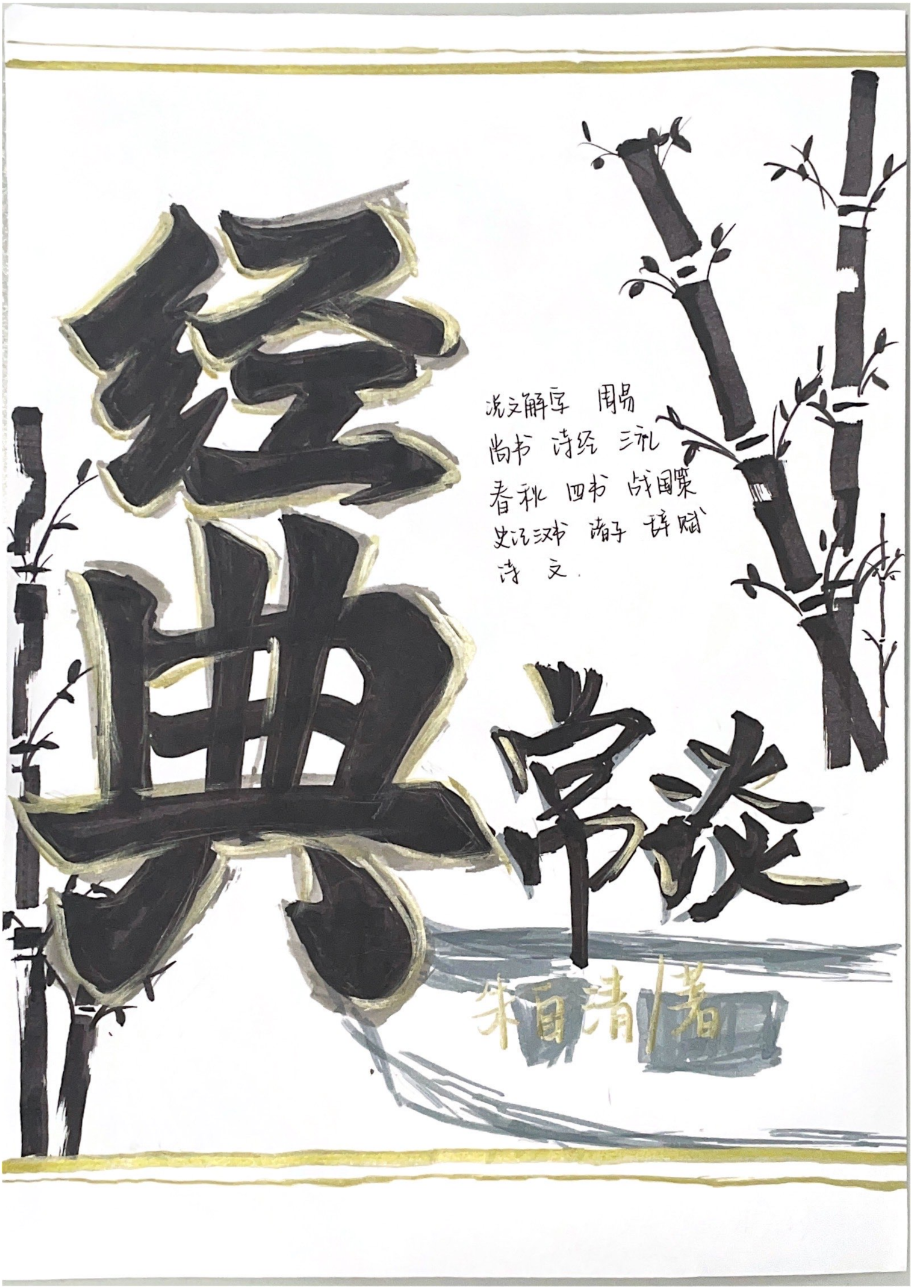 经典
常谈
说文解字 周易
尚书 诗经 三礼
春秋 四书 战国策
史记汉书 诸子 辞赋
诗 文.
朱自清/著